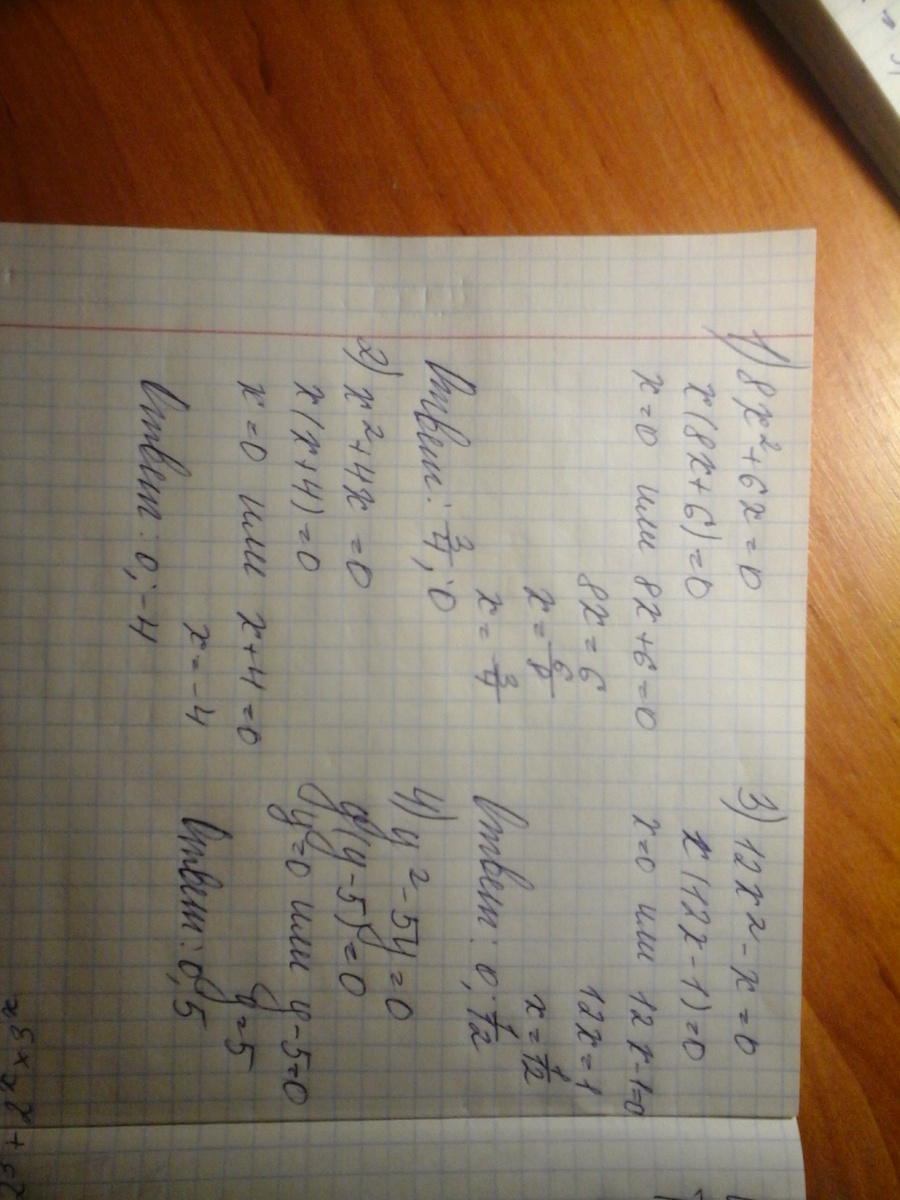 1) 8x²+6x=0
x(8x+6)=0
x=0 или 8x+6=0
8x=6
x=6/8
x=3/4
Ответ: 3/4; 0
2) x²+4x=0
x(x+4)=0
x=0 или x+4=0
x=-4
Ответ: 0; -4
3) 12x²-x=0
x(12x-1)=0
x=0 или 12x-1=0
12x=1
x=1/12
Ответ: 0; 1/12
4) y²-5y=0
y(y-5)=0
y=0 или y-5=0
y=5
Ответ: 0; 5
+ 2ˣ × 3ˣ